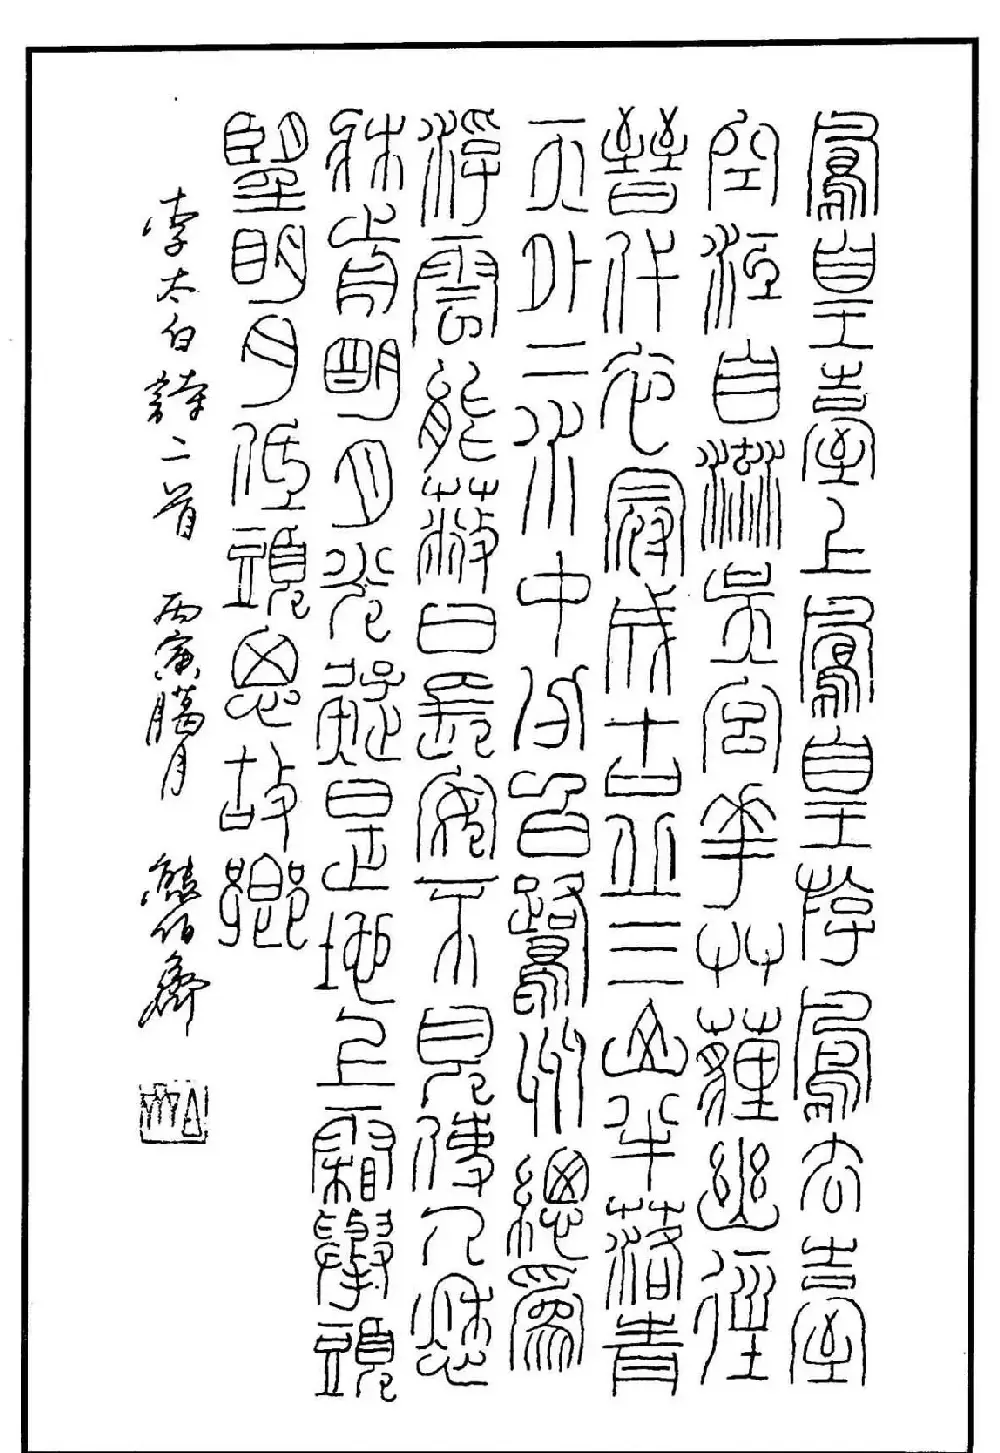 鳳皇臺上鳳皇游鳳去臺
空江自流吳宮華艸薶幽徑
晉代衣冠成古丘三山半落青
天外二水中分白鷺州總爲
浮雲能蔽日長安不見使人愁
牀前明月光疑是地上霜舉頭
望明月低頭思故鄉
李太白詩二首 丙寅臘月 熊伯齊